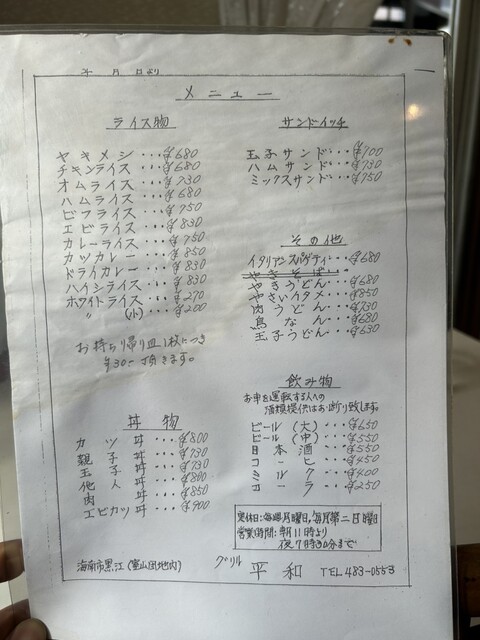 年 月 日より
メニュー
ライス物
ヤキメシ・・・¥680
チキンライス・・・¥680
オムライス・・・¥730
ハムライス・・・¥680
ビフライス・・・¥750
エビライス・・・¥830
カレーライス・・・¥750
カツカレー・・・¥850
ドライカレー・・・¥830
ハイシライス・・・¥830
ホワイトライス・・・¥270
〃 (小)・・・¥200
お持ち帰り皿1枚につき
¥30- 頂きます。
丼物
カツ丼・・・¥800
親子丼・・・¥730
玉子丼・・・¥730
他人丼・・・¥800
肉丼・・・¥850
エビカツ丼・・・¥900
サンドイッチ
玉子サンド・・・¥700
ハムサンド・・・¥730
ミックスサンド・・・¥750
その他
イタリアンスパゲティ・・・¥680
やきそば・・・
やきうどん・・・¥680
やさいイタメ・・・¥850
肉うどん・・・¥730
鳥なん・・・¥680
玉子うどん・・・¥630
飲み物
お車を運転する人への
酒類提供はお断り致します。
ビール(大)・・・¥650
ビール(中)・・・¥550
日本酒・・・¥550
コーヒ・・・¥450
ミルク・・・¥400
コーラ・・・¥250
定休日:毎週月曜日,毎月第二日曜日
営業時間:朝11時より
夜7時30分まで
海南市黒江(室山団地内) グリル 平和 TEL 483-0553